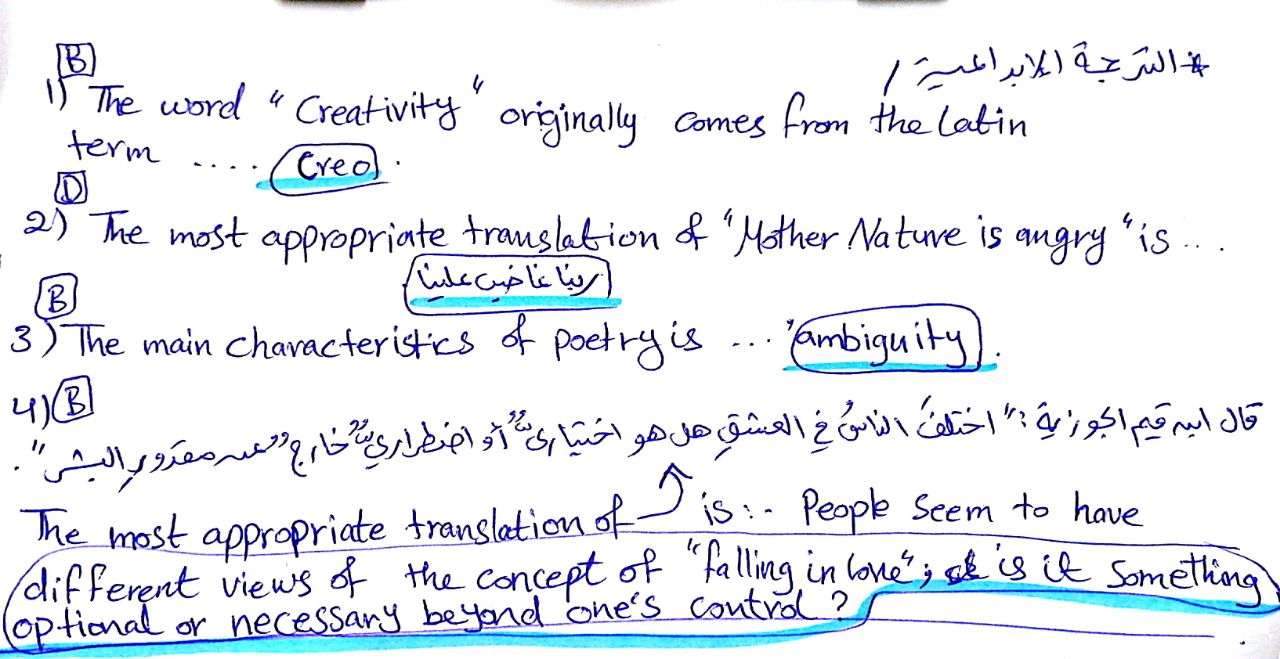 * الترجمة الإبداعية /
B
1) The word "Creativity" originally comes from the Latin
term .... Creo.
D
2) The most appropriate translation of "Mother Nature is angry" is ...
ربنا غاضب علينا
B
3) The main characteristics of poetry is ... "ambiguity.
4) B
قال ابن قيم الجوزية: "اختلفَ الناسُ في العشقِ هل هو اختياريٌّ أو اضطراريٌّ خارجٌ عن مقدورِ البشر".
The most appropriate translation of ↑ is :- People seem to have
different views of the concept of "falling in love"; is it something
optional or necessary beyond one's control?